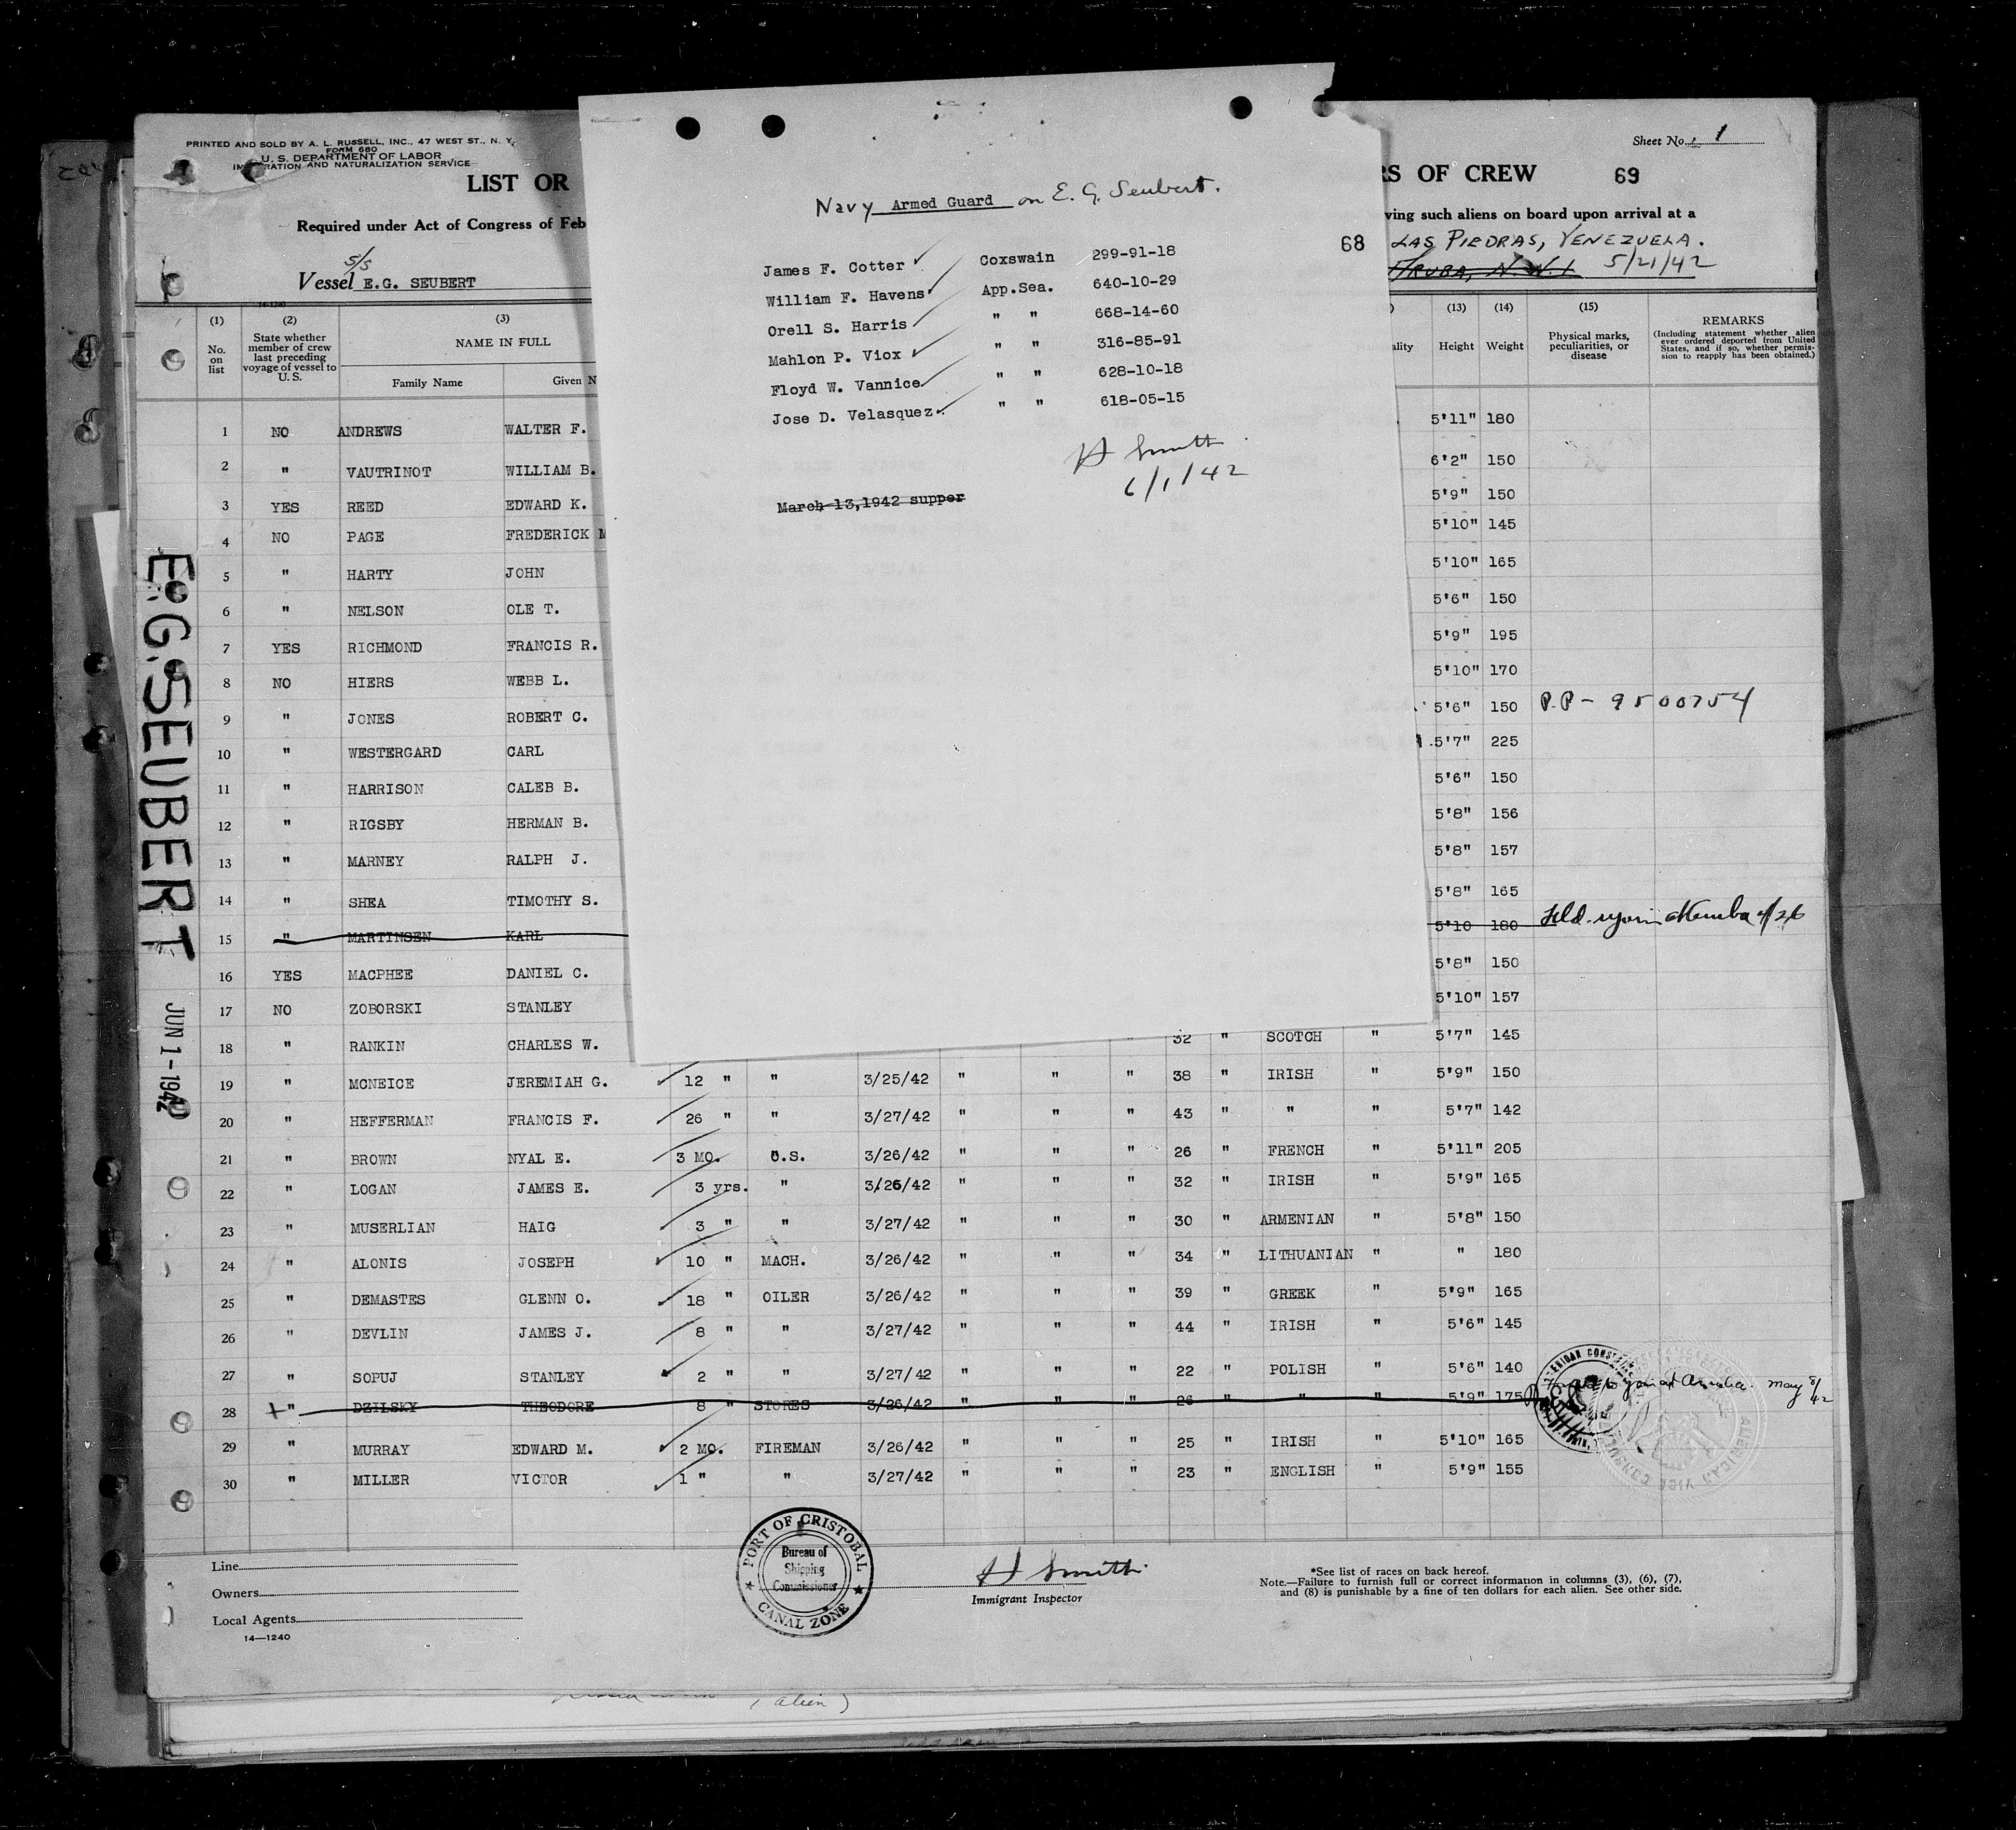 PRINTED AND SOLD BY A. L. RUSSELL, INC., 47 WEST ST., N. Y.
FORM 680
U. S. DEPARTMENT OF LABOR
IMMIGRATION AND NATURALIZATION SERVICE
Sheet No. 1
LIST OR
RS OF CREW 69
Required under Act of Congress of Feb
ving such aliens on board upon arrival at a
LAS PIEDRAS, VENEZUELA.
ARUBA, N. W. I. 5/21/42
S/S
Vessel E.G. SEUBERT
14-1240
Navy Armed Guard on E. G. Seubert.
68
James F. Cotter Coxswain 299-91-18
William F. Havens App.Sea. 640-10-29
Orell S. Harris " " 668-14-60
Mahlon P. Viox " " 316-85-91
Floyd W. Vannice " " 628-10-18
Jose D. Velasquez " " 618-05-15
H Smith
6/1/42
March 13,1942 supper
(1) No. on list
(2) State whether member of crew last preceding voyage of vessel to U. S.
(3) NAME IN FULL
Family Name Given N
ality
(13) Height
(14) Weight
(15) Physical marks, peculiarities, or disease
REMARKS
(Including statement whether alien ever ordered deported from United States, and if so, whether permission to reapply has been obtained.)
1 NO ANDREWS WALTER F. 5'11" 180
2 " VAUTRINOT WILLIAM B. 6'2" 150
3 YES REED EDWARD K. 5'9" 150
4 NO PAGE FREDERICK M 5'10" 145
5 " HARTY JOHN 5'10" 165
6 " NELSON OLE T. 5'6" 150
7 YES RICHMOND FRANCIS R. 5'9" 195
8 NO HIERS WEBB L. 5'10" 170
9 " JONES ROBERT C. 5'6" 150 P.P - 9500754
10 " WESTERGARD CARL 5'7" 225
11 " HARRISON CALEB B. 5'6" 150
12 " RIGSBY HERMAN B. 5'8" 156
13 " MARNEY RALPH J. 5'8" 157
14 " SHEA TIMOTHY S. 5'8" 165
15 " MARTINSEN KARL 5'10 180
16 YES MACPHEE DANIEL C. 5'8" 150
17 NO ZOBORSKI STANLEY 5'10" 157
18 " RANKIN CHARLES W. 32 " SCOTCH " 5'7" 145
19 " MCNEICE JEREMIAH G. 12 " " 3/25/42 " " " 38 " IRISH " 5'9" 150
20 " HEFFERMAN FRANCIS F. 26 " " 3/27/42 " " " 43 " " " 5'7" 142
21 " BROWN NYAL E. 3 MO. O.S. 3/26/42 " " " 26 " FRENCH " 5'11" 205
22 " LOGAN JAMES E. 3 yrs. " 3/26/42 " " " 32 " IRISH " 5'9" 165
23 " MUSERLIAN HAIG 3 " " 3/27/42 " " " 30 " ARMENIAN " 5'8" 150
24 " ALONIS JOSEPH 10 " MACH. 3/26/42 " " " 34 " LITHUANIAN " " 180
25 " DEMASTES GLENN O. 18 " OILER 3/26/42 " " " 39 " GREEK " 5'9" 165
26 " DEVLIN JAMES J. 8 " " 3/27/42 " " " 44 " IRISH " 5'6" 145
27 " SOPUJ STANLEY 2 " " 3/27/42 " " " 22 " POLISH " 5'6" 140
28 " DZILSKY THEODORE 8 " STORES 3/26/42 " " " 26 " " 5'9" 175 join at Aruba. May 8/42
29 " MURRAY EDWARD M. 2 MO. FIREMAN 3/26/42 " " " 25 " IRISH " 5'10" 165
30 " MILLER VICTOR 1 " " 3/27/42 " " " 23 " ENGLISH " 5'9" 155
E.G. SEUBERT
JUN 1-1942
AMERICAN VICE CONSUL
Line
Owners
Local Agents
14—1240
PORT OF CRISTOBAL
Bureau of
Shipping
Commissioner
CANAL ZONE
H Smith
Immigrant Inspector
*See list of races on back hereof.
Note.—Failure to furnish full or correct information in columns (3), (6), (7),
and (8) is punishable by a fine of ten dollars for each alien. See other side.
(alien)